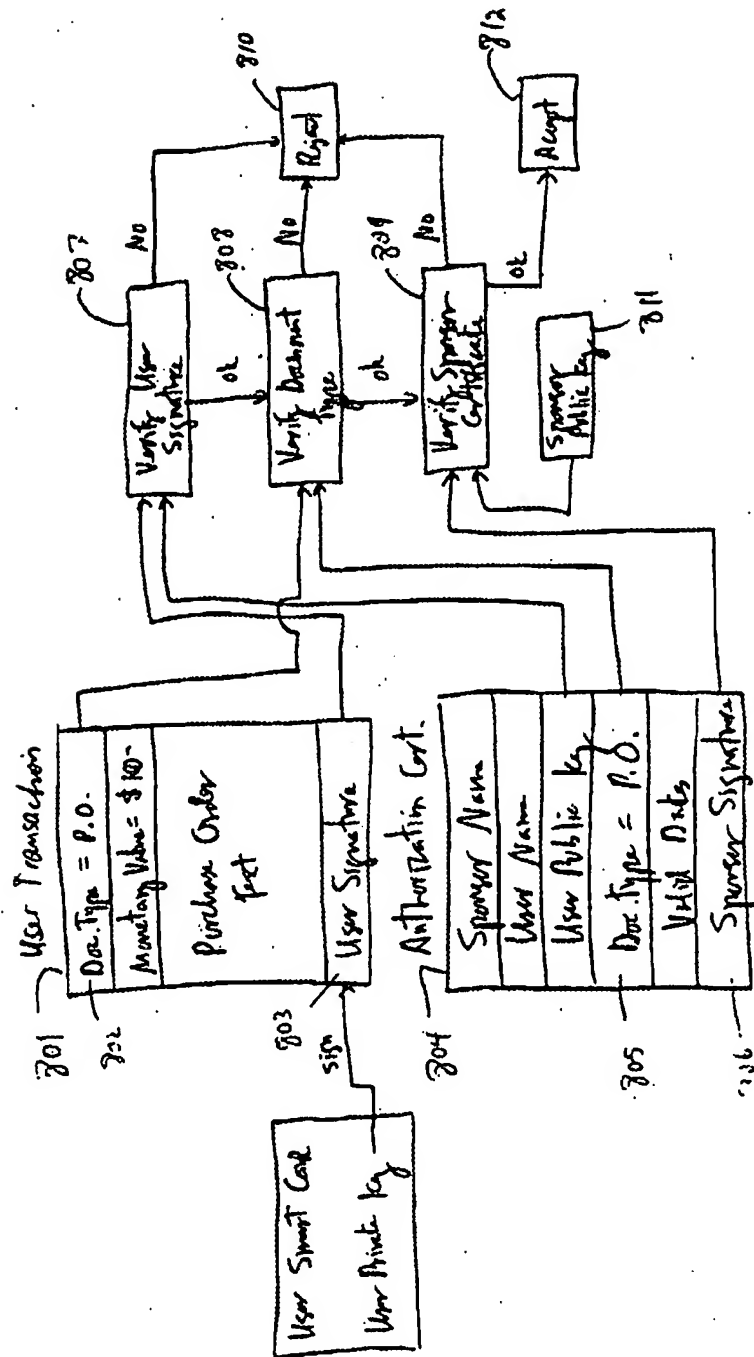 User Smart Card
User Private Key
sign
801
User Transaction
802
Doc. Type = P.O.
Monetary Value =
Purchase Order
Text
803
User Signature
804
Authorization Cert.
Sponsor Name
User Name
User Public Key
805
Doc. Type = P.O.
Valid Dates
Sponsor Signature
807
Verify User
Signature
No
ok
808
Verify Document
Type
No
ok
809
Verify Sponsor
Certificate
No
ok
810
Reject
811
Sponsor
Public Key
812
Accept